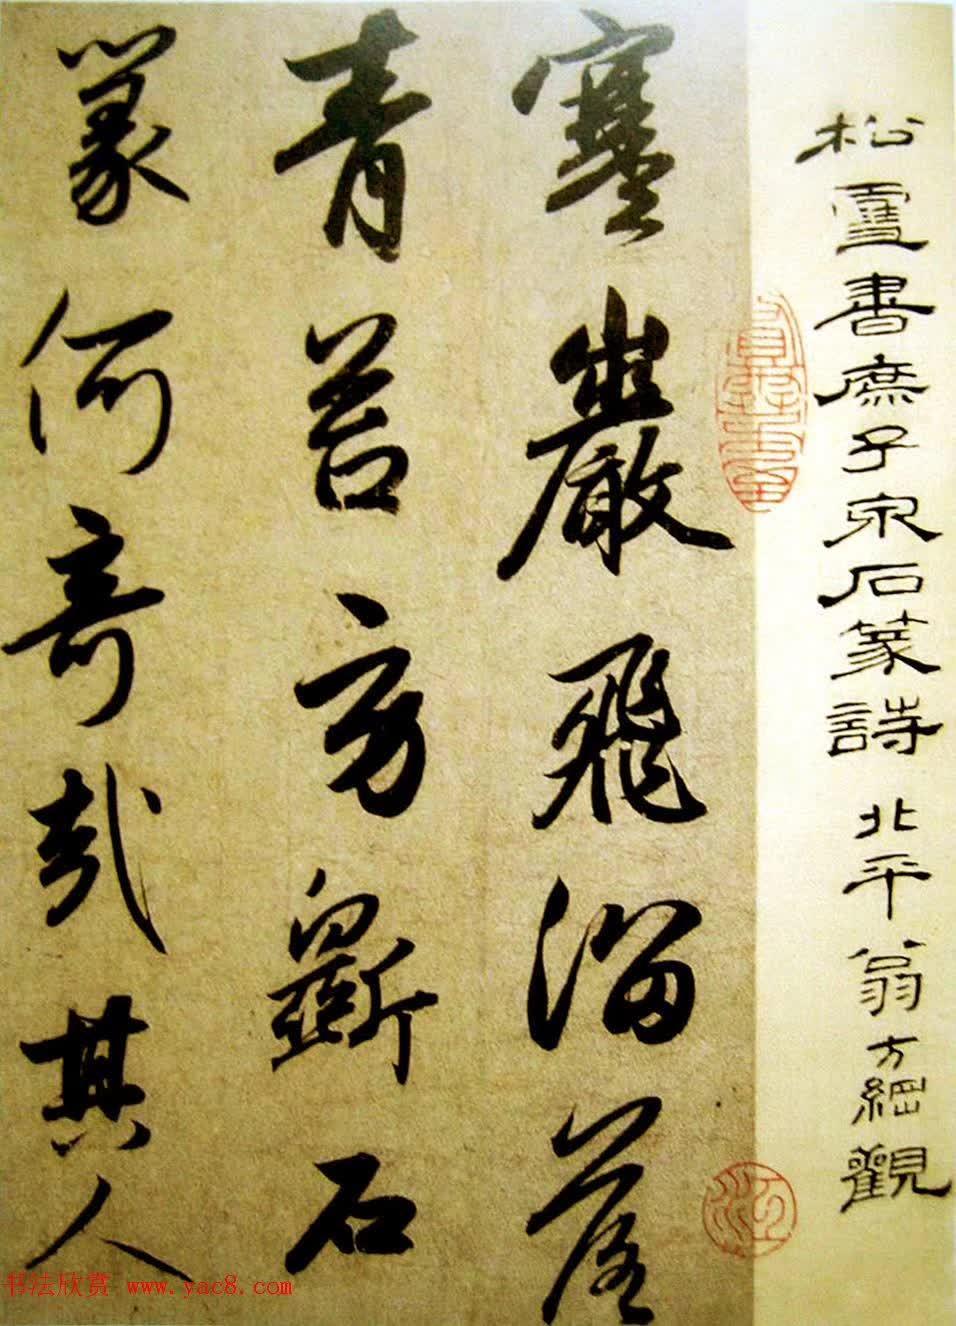 松雪書庶子泉石篆詩 北平翁方綱觀
寒巖飛溜落
青苔方斲石
篆何奇哉其人
书法欣赏 www.yac8.com